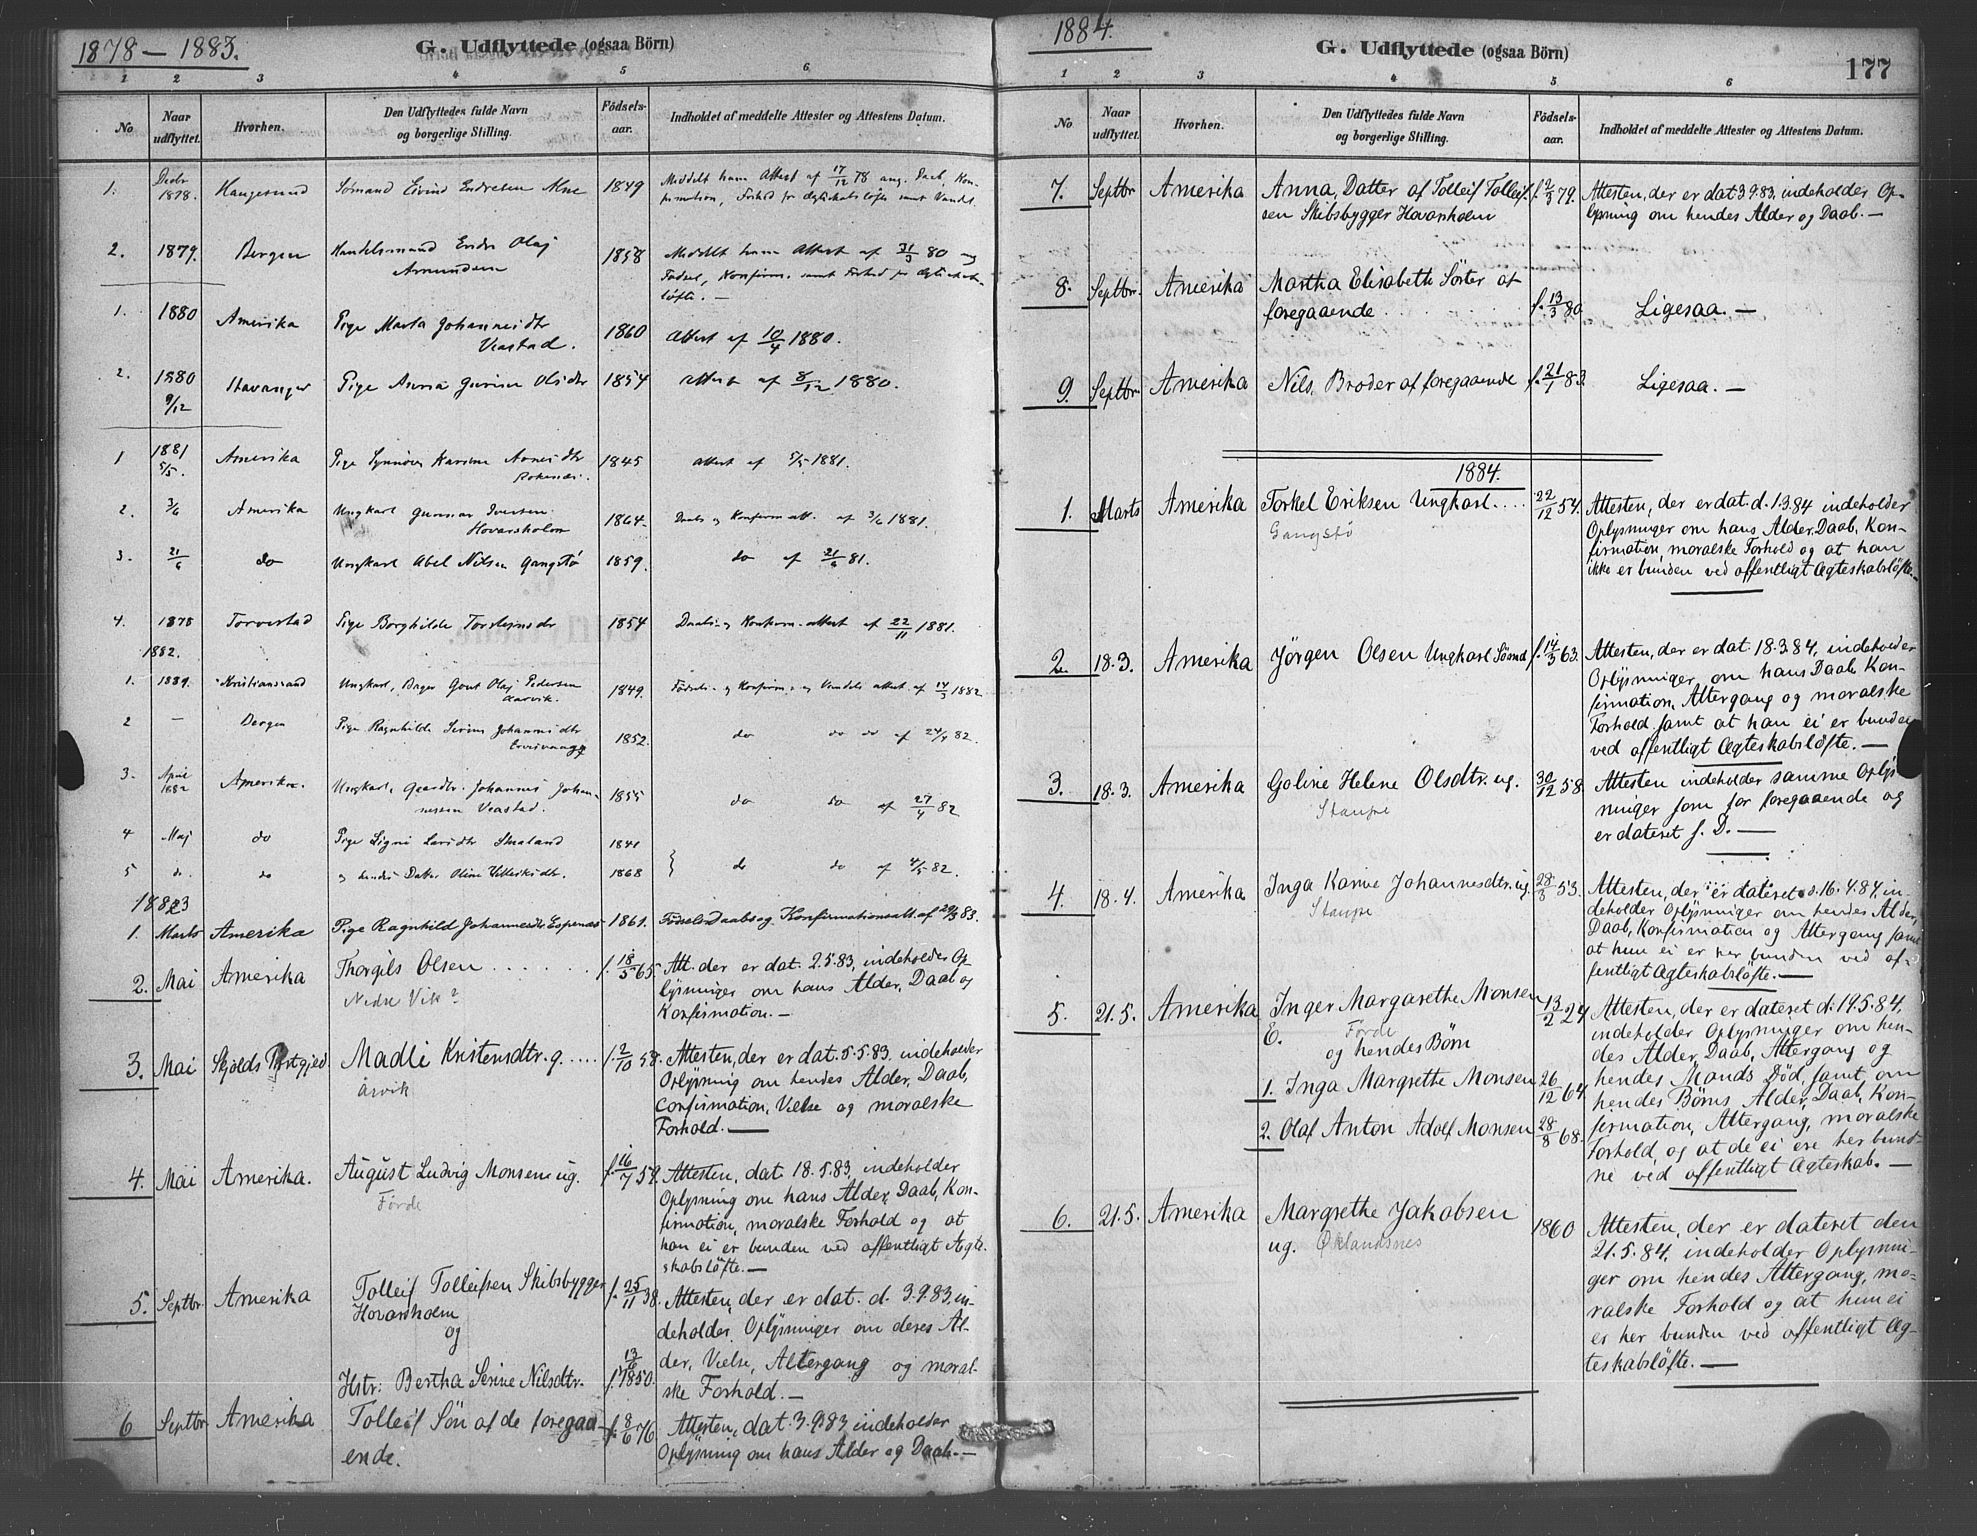 1878 – 1883.
G. Udflyttede (ogsaa Börn)
1 2 3 4 5 6
No
Naar udflyttet.
Hvorhen.
Den Udflyttedes fulde Navn
og borgerlige Stilling.
Födsels-
aar.
Indholdet af meddelte Attester og Attestens Datum.
1. Decbr 1878. Haugesund Sømand Eivind Endresen 1849 Meddelt ham Attest af 17/12 78 ang. Daab, Kon-
firmation, Forhold for Ægteskabsløfte samt Vandel.
2. 1879. Bergen Handelsmand Endre Olaj
Amundsen 1858 Meddelt ham Attest af 31/3 80 ang
Fødsel, Konfirm. samt Forhold for Ægteskabs-
løfte. —
1. 1880 Amerika Pige Marta Johannesdtr
Veastad. 1860 Attest af 10/4 1880.
2. 1880
9/12 Stavanger Pige Anna Gurine Olsdtr 1854 Attest af 8/12 1880.
1 1881
5/5. Amerika Pige Synnøve Karine Arnesdtr 1845 Attest af 5/5 1881.
2. 3/6 Amerika Ungkarl Gunnar Iversen
Hovarsholm 1864 Daabs og Konfirm. att. af 3/6 1881.
3. 21/6 do Ungkarl Abel Nilsen Gangstø 1859. do af 21/6 81.
4. 1878 Torvestad Pige Borghilde Torsteinsdr 1854 Daabs- og Konfirm. attest af 22/11 1881.
1882.
1. Kristianssand Ungkarl, Bager Gout Olaj Pedersen
Aarvik. 1849. Fødsels- og Konfirm.- og Vandels attest af 14/3 1882
2 — Bergen Pige Ragnhilde Serine Johannisdtr 1852. do do do af 24/4 82.
3. April
1882 Amerika. Ungkarl, Gaardbr. Johannes Johan-
nessen Veastad. 1855 do do af 27/4 82
4 Maj do Pige Signi Larsdtr Smaland 1841
5 do. do og hendes Datter Oline Villiksdtr. 1868 } do do af 4/5 82.
1883
1. Marts Amerika Pige Ragnhild Johannesdtr Espenæs 1861. Fødsels Daabs og Konfirmationsatt. af 29/3 83.
2. Mai Amerika Thorgils Olsen . . . . . . f. 18/5 65. Att. der er dat. 2.5.83, indeholder Op-
Nedre Vik? lysninger om hans Alder, Daab og
Konfirmation. —
3. Mai Skjolds Prstgjeld Madli Kristensdtr. g. .... f. 2/10 58. Attesten, der er dat. 5.5.83, indeholder
Årvik Oplysning om hendes Alder, Daab,
Confirmation, Vielse og moralske
Forhold. —
4. Mai Amerika. August Ludvig Monsen ug. f. 16/7 59. Attesten, dat. 18.5.83, indeholder
Förde Oplysning om hans Alder, Daab, Kon-
firmation, moralske Forhold og at
han ei er bunden ved offentligt Ægte-
skabsløfte. —
5. Septbr. Amerika Tolleif Tolleifsen Skibsbygger f. 25/11 38. Attesten, der er dat. d. 3.9.83, in-
Hovarsholm deholder Oplysninger om deres Al-
og
der, Vielse, Altergang og moral-
Hstr: Bertha Serine Nilsdtr. f. 13/6 1850. ske Forhold. —
6 Septbr Amerika Tolleif Søn af de foregaa- f. 8/6 76. Attesten, dat. 3.9.83 indeholder
ende. Oplysning om hans Alder og Daab. —
1884.
G. Udflyttede (ogsaa Börn)
177
1 2 3 4 5 6
No.
Naar udflyttet.
Hvorhen.
Den Udflyttedes fulde Navn
og borgerlige Stilling.
Födsels-
aar.
Indholdet af meddelte Attester og Attestens Datum.
7. Septbr Amerika Anna, Datter af Tolleif Tolleif- f. 2/3 79. Attesten, der er dat 3.9.83, indeholder Op-
sen Skibsbygger Hovarsholm lysning om hendes Alder og Daab. —
8. Septbr. Amerika Martha Elisabeth Søster af
foregaaende f. 13/3 80. Ligesaa. —
9. Septbr Amerika Nils, Broder af foregaaende f. 21/1 83. Ligesaa. —
1884.
1. Marts Amerika Torkel Eriksen Ungkarl.... 22/12 54. Attesten, der er dat. d. 1.3.84 indeholder
Gangstø Oplysninger om hans Alder, Daab, Kon-
firmation, moralske Forhold og at han
ikke er bunden ved offentligt Ægteskabsløfte. —
2. 18.3. Amerika Jörgen Olsen Ungkarl Sömd f. 14/3 63. Attesten, der er dat. 18.3.84, indeholder
Oplysninger om hans Daab, Kon-
firmation, Altergang og moralske
Forhold samt at han ei er bunden
ved offentligt Ægteskabsløfte. —
3. 18.3. Amerika Goline Helene Olsdtr. ug. 30/12 58. Attesten indeholder samme Oplys-
Staupe ninger som for foregaaende og
er dateret s. D. —
4. 18.4. Amerika Inga Karine Johannesdtr. ug. 28/3 53. Attesten, der er dateret d. 16.4.84, in-
Staupe deholder Oplysninger om hendes Alder,
Daab, Konfirmation og Altergang samt
at hun ei er her bunden ved of-
fentligt Ægteskabsløfte. —
5. 21.5. Amerika Inger Margarethe Monsen 13/2 24 Attesten, der er dateret d. 19.5.84,
E. Förde indeholder Oplysninger om hen-
og hendes Börn des Alder, Daab, Altergang og
1. Inga Margrethe Monsen 26/12 64. hendes Mands Död, samt om
hendes Börns Alder, Daab, Kon-
2. Olaf Anton Adolf Monsen 28/8 68. firmation, Altergang, moralske
Forhold, og at de ei ere her bund-
ne ved offentligt Ægteskab. —
6. 21.5. Amerika Margrethe Jakobsen 1860 Attesten, der er dateret den
ug. Øklandsnes 21.5.84, indeholder Oplysnin-
ger om hendes Altergang, mo-
ralske Forhold og at hun ei
er her bunden ved offentligt Æg-
teskabsløfte. —